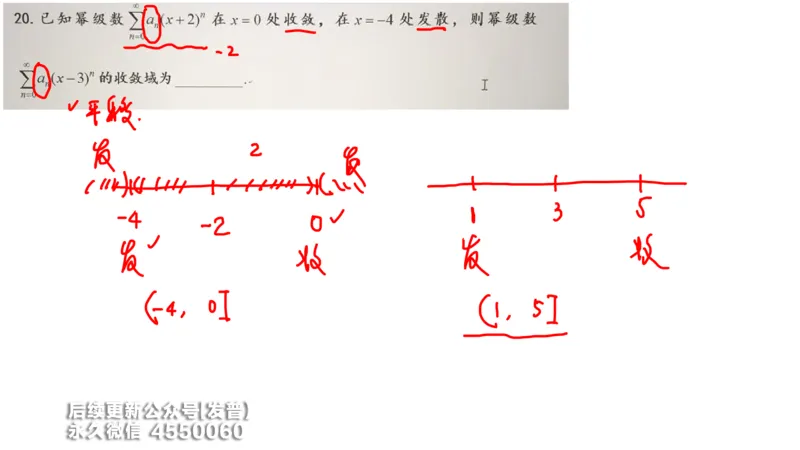 20. 已知幂级数 ∑_{n=0}^{∞} a_n(x+2)^n 在 x=0 处收敛，在 x=-4 处发散，则幂级数
-2
∑_{n=0}^{∞} a_n(x-3)^n 的收敛域为________.
✓ 平移.
发 2 发
-4 -2 0 ✓ 1 3 5
发 ✓ 收 发 收
(-4, 0] (1, 5]
后续更新公众号(发普)
永久微信 4550060